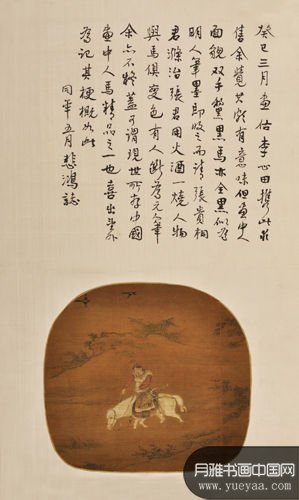 癸巳三月畫估李心田携此求
售余覺其頗有意味但畫中人
面貌双手黧黑馬亦全黑似為
明人筆墨即收之而請張貴桐
君滌治張君用火酒一燒人物
與馬俱變色有人斷為元人筆
余亦不盖可謂現世所存中國
畫中人馬精品之一也喜出望外
為記其梗概如此
同年五月悲鴻誌
月雅书画中国网
www.yueyaa.com